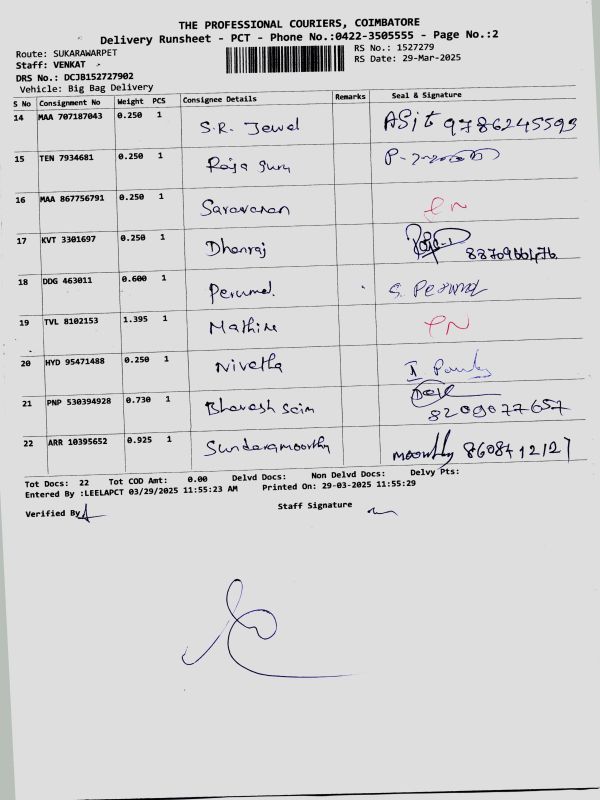 THE PROFESSIONAL COURIERS, COIMBATORE
Delivery Runsheet - PCT - Phone No.:0422-3505555 - Page No.:2
Route: SUKARAWARPET
RS No.: 1527279
Staff: VENKAT
RS Date: 29-Mar-2025
DRS No.: DCJB152727902
Vehicle: Big Bag Delivery
S No Consignment No Weight PCS Consignee Details Remarks Seal & Signature
14 MAA 707187043 0.250 1 S.R. Jewel ASit 9786245599
15 TEN 7934681 0.250 1 Raja guru
16 MAA 867756791 0.250 1 Saravanan PN
17 KVT 3301697 0.250 1 Dhanraj
18 DDG 463011 0.600 1 Perumal S. Perumal
19 TVL 8102153 1.395 1 PN
20 HYD 95471488 0.250 1 Nivetha
21 PNP 530394928 0.730 1 8209077657
22 ARR 10395652 0.925 1 Sunderamoorthy moorthy
Tot Docs: 22 Tot COD Amt: 0.00 Delvd Docs: Non Delvd Docs: Delvy Pts:
Entered By :LEELAPCT 03/29/2025 11:55:23 AM Printed On: 29-03-2025 11:55:29
Verified By
Staff Signature